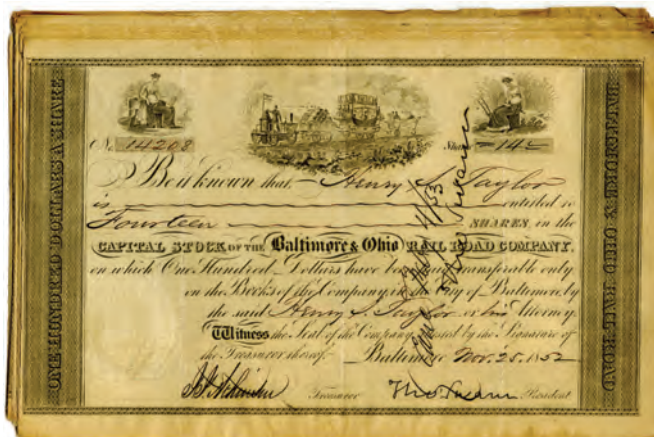 ONE HUNDRED DOLLARS A SHARE
No. 14208
Shares 14
Be it known that Henry S. Taylor
is entitled to
Fourteen SHARES in the
CAPITAL STOCK OF THE Baltimore & Ohio RAIL ROAD COMPANY,
on which One Hundred Dollars have been paid transferable only
on the Books of the Company, in the City of Baltimore, by
the said Henry S. Taylor or his Attorney.
Witness the Seal of the Company attested by the Signature of
the Treasurer thereof. Baltimore Nov. 25. 1852
Treasurer Tho. Swann President
BALTIMORE & OHIO RAIL ROAD